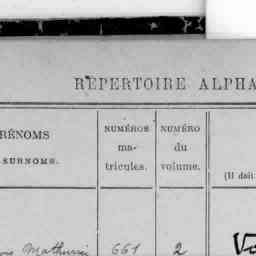 RÉPERTOIRE ALPHA
RÉNOMS
SURNOMS.
NUMÉROS
ma-
tricules.
NUMÉRO
du
volume.
(Il doit
Mathurin 661 2